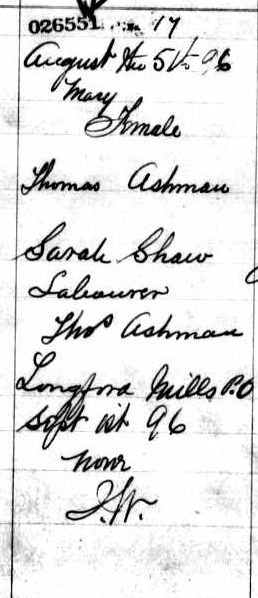 026551 17
August the 5th 96
Mary
Female
Thomas Ashman
Sarah Shaw
Labourer
Thos Ashman
Longford Mills P.O
Sept 1st 96